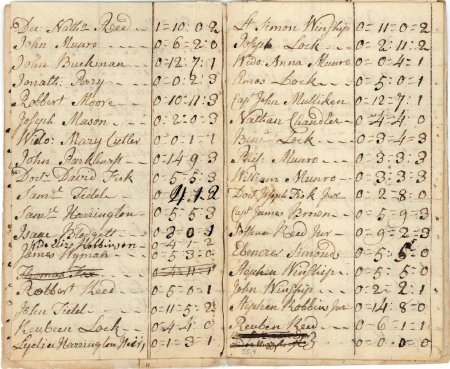 Dec: Nathˡˡ Reed 1=10:0:2
John Munro 0=6=2:0
John Buckman 0=12=7:1
Jonathⁿ Perry 0=0:2:3
Robbert Moore 0=10=11:3
Joseph Mason 0:2:0:3
Wido: Mary Cutler 0:0:1=1
John Parkhurst 0=14=9:3
Docᵗʳ David Fisk 0=5=5:3
Samˡˡ Fidel 0 4 1 2
Samˡˡ Harrington 0=5=5:3
Isaac Blodgett 0 2=0:1
Wido Eliz: Robbinson 0-4-1-2
James Wyman 0=5=3:0
Robbert Reed 0=5=0=1
John Fidel 0=11=5:2
Reubene Lock 0:4:4:0
Lydia Harrington 0=1=3:1
Lᵗ Simon Winship 0=11=0=2
Joseph Lock 0=2:11:2
Wido: Anna Munro 0=0=4=1
Amos Lock 0=5:0=1
Capᵗ John Mulliken 0=12=7:1
Nathan Chandler 0=4=4:0
Benjᵃ Lock 0=3=4=3
Phip Munro 0=3=3=3
William Munro 0=3:3:3
Docᵗ Joseph Fisk Juʳ 0=2=8:0
Capᵗ James Brown 0=5=9=3
Joshua Reed Juʳ 0=9=2=3
Ebenezer Simonds 0=5:5:0
Stephen Winship 0=5:5:0
John Winship 0=2:2:1
Stephen Robbins Juʳ 0=14:8=0
Reuben Reed 0=6:1=1
0=0:0:0